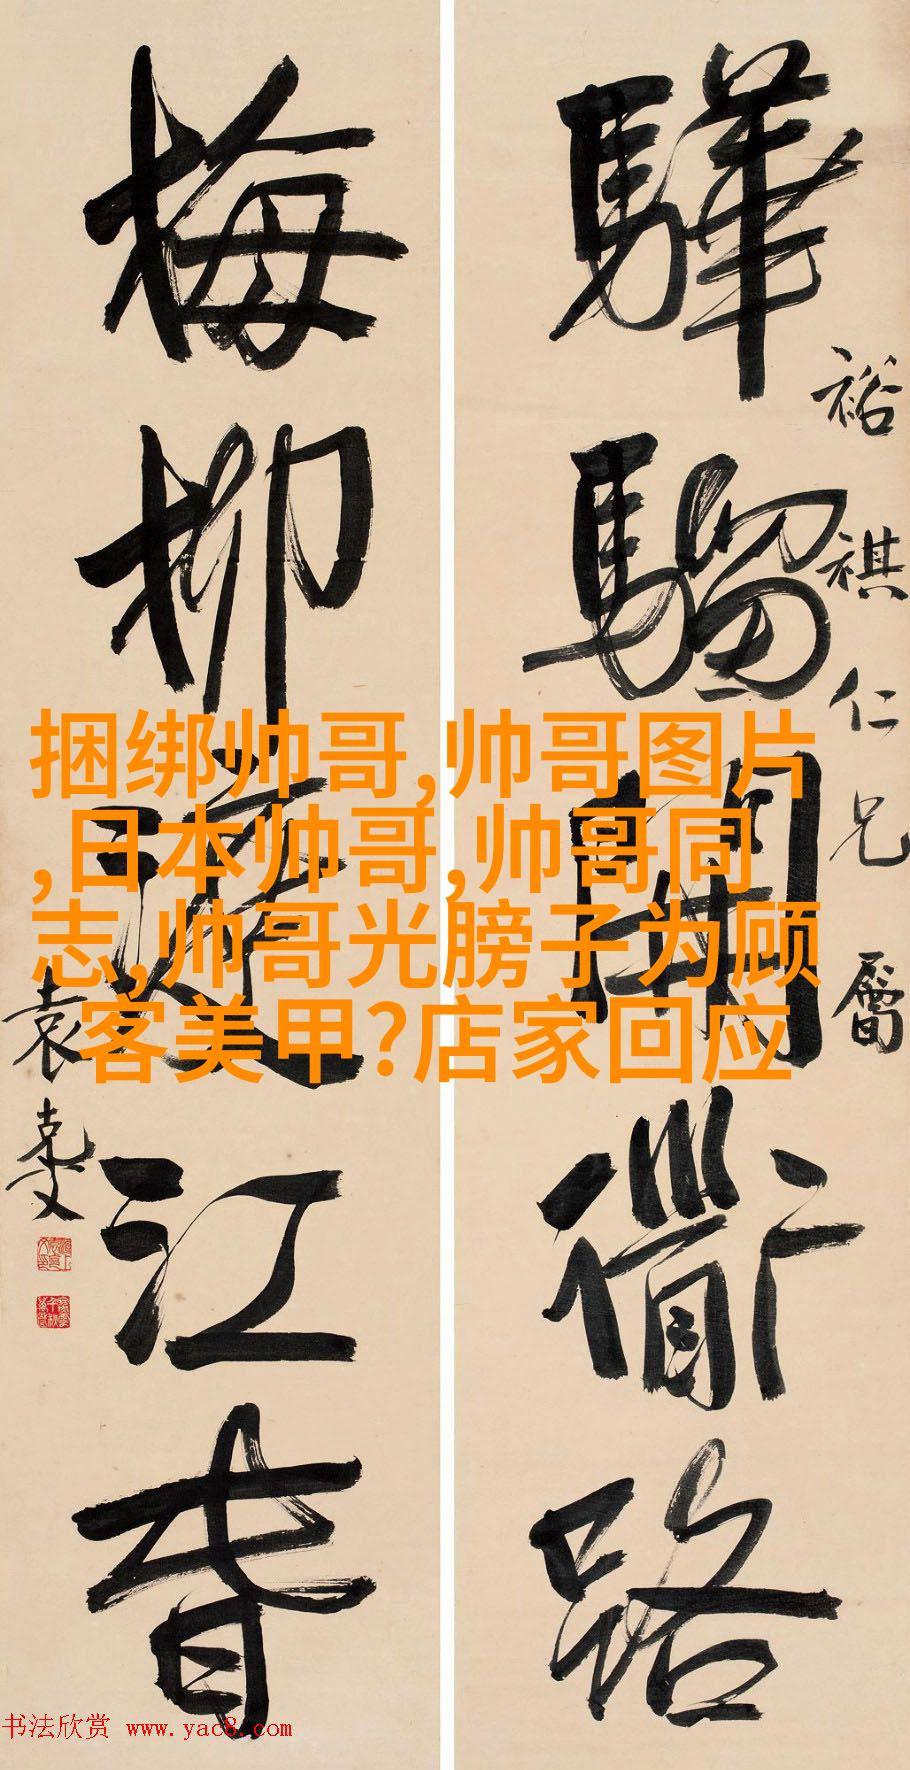 裕祺仁兄屬
驊騮開衜路
梅柳渡江春
袁克文
捆绑帅哥,帅哥图片
,日本帅哥,帅哥同
志,帅哥光膀子为顾
客美甲?店家回应
书法欣赏 www.yac8.com